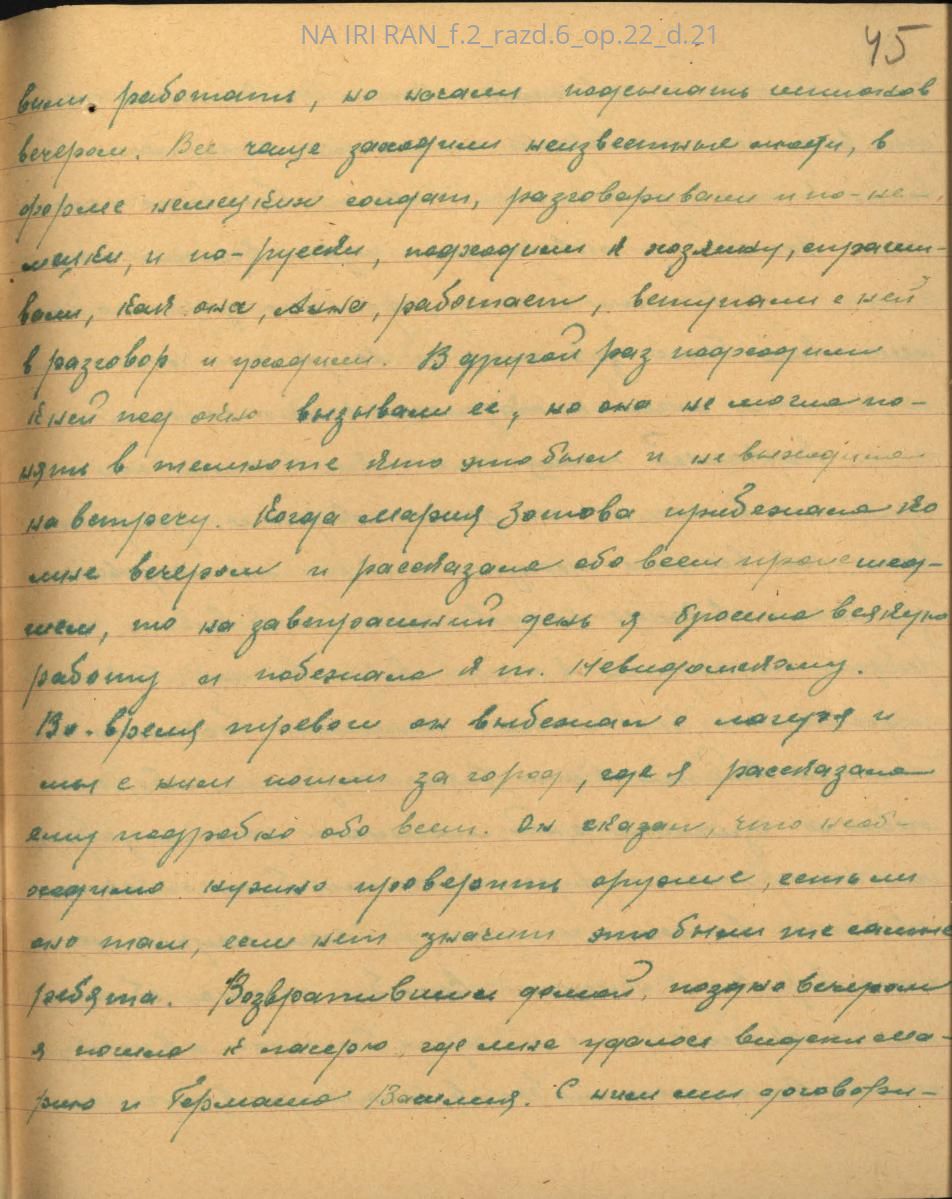 NA IRI RAN_f.2_razd.6_op.22_d.21
45
вили работать, но начали подсылать шпионов
вечером. Все чаще заходили неизвестные люди, в
форме немецких солдат, разговаривали и по-не-
мецки, и по-русски, подходили к хозяину, спраши-
вали, как она, Анна, работает, вступали с ней
в разговор и уходили. В другой раз подходили
к ней под окно вызывали ее, но она не могла по-
нять в темноте кто это был и не выходила
на встречу. Когда Мария Зотова прибежала ко
мне вечером и рассказала обо всем происшед-
шем, то на завтрашний день я бросила всякую
работу и побежала к т. Невидомскому.
Во время тревоги он выбежал с лагеря и
мы с ним пошли за город, где я рассказала
ему подробно обо всем. Он сказал, что необ-
ходимо нужно проверить оружие, есть ли
оно там, если нет значит это были те самые
ребята. Возвратившись домой, поздно вечером
я пошла к лагерю, где мне удалось видеть Ма-
рию и Германа Василия. С ним мы договори-